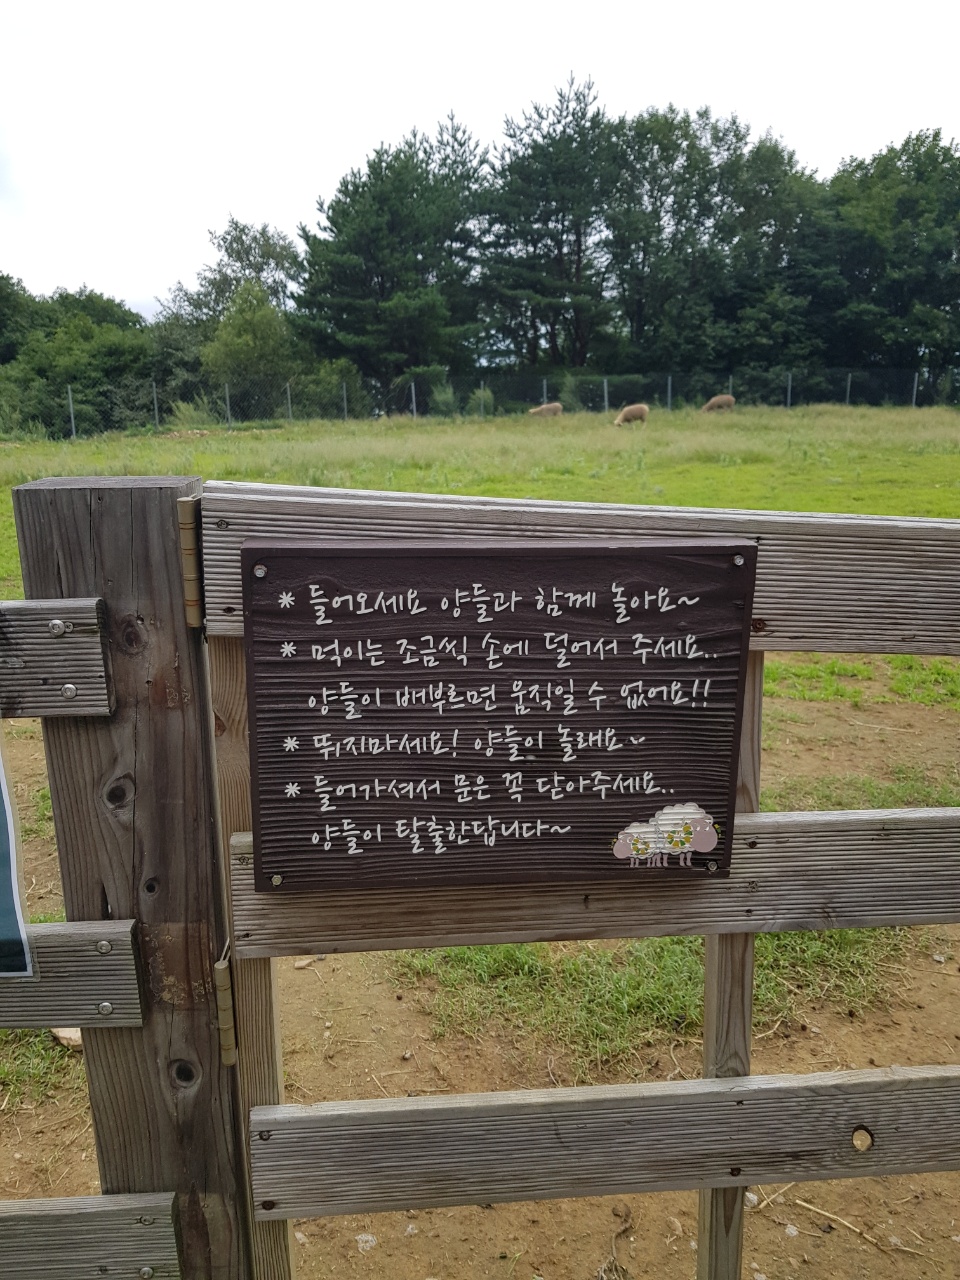 * 들어오세요 양들과 함께 놀아요~
* 먹이는 조금씩 손에 덜어서 주세요..
양들이 배부르면 움직일 수 없어요!!
* 뛰지마세요! 양들이 놀래요~
* 들어가셔서 문은 꼭 닫아주세요..
양들이 탈출한답니다~